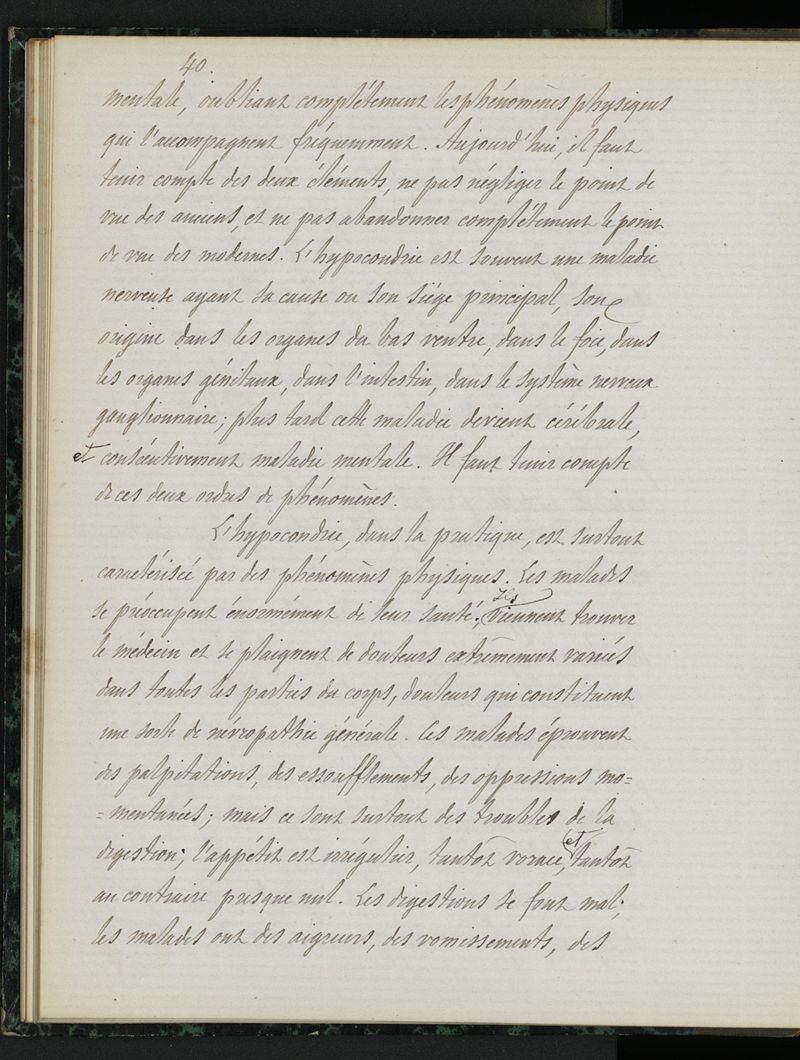 40.
mentale, oubliant complétement les phénomènes physiques
qui l'accompagnent fréquemment. Aujourd'hui, il faut
tenir compte des deux éléments, ne pas négliger le point de
vue des anciens, et ne pas abandonner complétement le point
de vue des modernes. L'hypocondrie est souvent une maladie
nerveuse ayant sa cause ou son siége principal, son
origine dans les organes du bas ventre, dans le foie, dans
les organes génitaux, dans l'intestin, dans le système nerveux
ganglionnaire; plus tard cette maladie devient cérébrale,
et consécutivement maladie mentale. Il faut tenir compte
de ces deux ordres de phénomènes.
L'hypocondrie, dans la pratique, est surtout
caractérisée par des phénomènes physiques. Les malades
se préoccupent énormément de leur santé; Ils viennent trouver
le médecin et se plaignent de douleurs extrêmement variées
dans toutes les parties du corps, douleurs qui constituent
une sorte de névropathie générale. Ces malades éprouvent
des palpitations, des essoufflements, des oppressions mo=
=mentanées; mais ce sont surtout des troubles de la
digestion; l'appétit est irrégulier, tantôt vorace, et tantôt
au contraire presque nul. Les digestions se font mal;
les malades ont des aigreurs, des vomissements, des